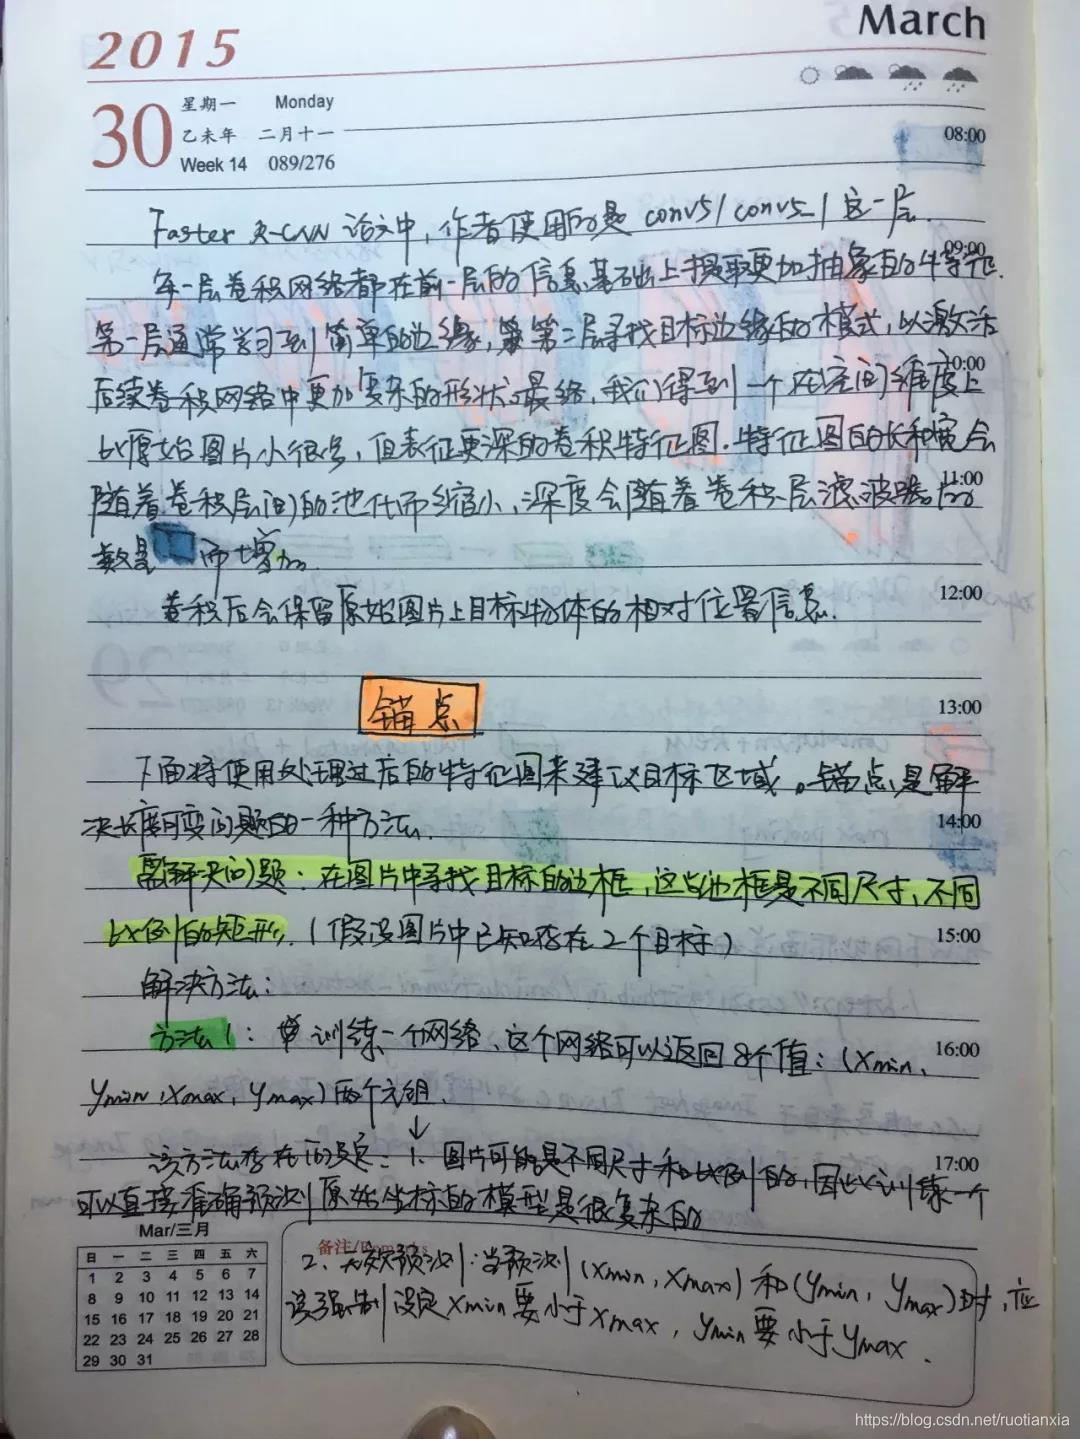 2015
March
30
星期一 Monday
乙未年 二月十一
Week 14 089/276
08:00
Faster R-CNN 论文中，作者使用的是 conv5/conv5_1 这一层.
09:00
每一层卷积网络都在前一层的信息基础上提取更加抽象的特征.
第一层通常学习到简单的边缘，第二层寻找目标边缘的模式，以激活
10:00
后续卷积网络中更加复杂的形状，最终，我们得到一个在空间维度上
比原始图片小很多，但表征更深的卷积特征图.特征图的长和宽会
11:00
随着卷积层间的池化而缩小，深度会随着卷积层滤波器的
数量 而增加.
12:00
卷积后会保留原始图片上目标物体的相对位置信息.
13:00
锚点
下面将使用处理过后的特征图来建议目标区域。锚点是解
14:00
决长度可变问题的一种方法.
需解决问题：在图片中寻找目标的边框，这些边框是不同尺寸，不同
比例的矩形.（假设图片中已知存在2个目标）
15:00
解决方法：
方法1： 训练一个网络、这个网络可以返回8个值：(xmin,
16:00
ymin,xmax, ymax) 两个元组.
17:00
该方法存在的缺点：1. 图片可能是不同尺寸和比例的，因此训练一个
可以直接准确预测原始坐标的模型是很复杂的
Mar/三月
备注/Remarks
日 一 二 三 四 五 六
1 2 3 4 5 6 7
8 9 10 11 12 13 14
15 16 17 18 19 20 21
22 23 24 25 26 27 28
29 30 31
2、无效预测：当预测 (xmin, xmax) 和 (ymin, ymax) 时，应
该强制设定 xmin 要小于 xmax，ymin 要小于 ymax.
https://blog.csdn.net/ruotianxia